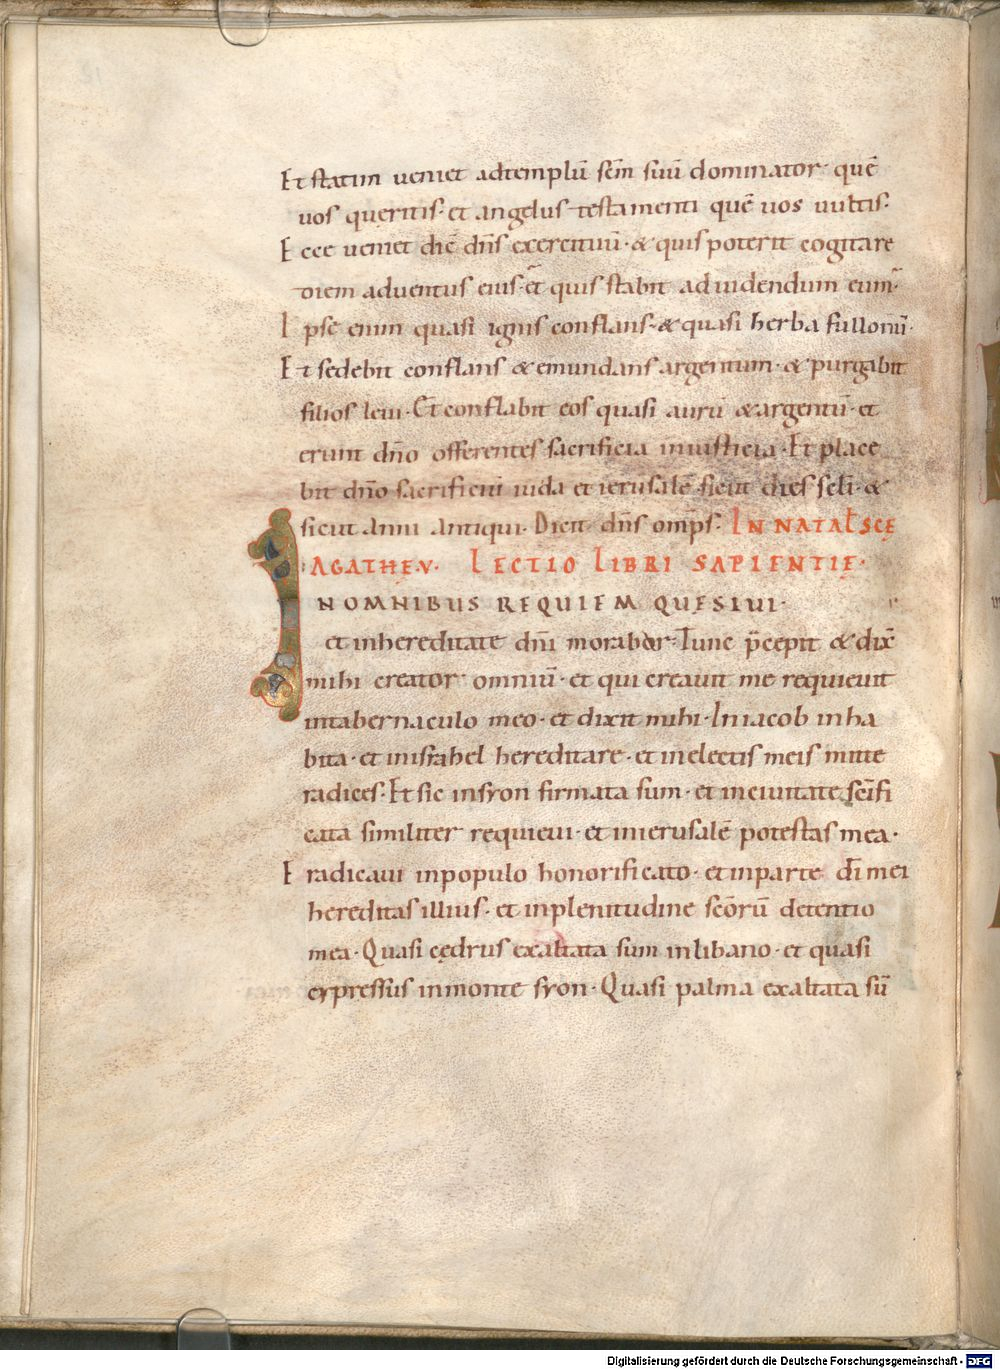 Et statim veniet adtemplū scm̄ suū dominator· quē
uos queritis· et angelus testamenti quē uos uultis·
Ecce ueniet dic̄ dn̄s exercituū· & quis poterit cogitare
diem aduentus eius· et quis stabit aduidendum eum·
Ipse enim quasi ignis conflans· & quasi herba fullonū·
Et sedebit conflans & emundans argentum· & purgabit
filios leui· Et conflabit eos quasi aurū & argentū· et
erunt dn̄o offerentes sacrificia iniusticia· Et place
bit dn̄o sacrificiū iuda et ierusalē sicut dies sc̄li· &
sicut anni antiqui· Dicit dn̄s omp̄s· IN NATAL̄ SCĘ
AGATHE·V· LECTIO LIBRI SAPIENTIE·
IN OMNIBUS REQUIEM QUESIUI·
et inhereditate dn̄i morabor· Tunc p̄cepit & dix̄
mihi creator omniū· et qui creauit me requieuit
intabernaculo meo· et dixit mihi· Iniacob inha
bita· et inisrahel hereditare· et inelectis meis mitte
radices· Et sic insyon firmata sum· et inciuitate sc̄ifi
cata similiter requieui· et inierusalē potestas mea·
Eradicaui inpopulo honorificato· et inparte dī mei
hereditas illius· et inplenitudine sc̄orū detentio
mea· Quasi cędrus exaltata sum inlibano· et quasi
cypressus inmonte syon· Quasi palma exaltata sū
Digitalisierung gefördert durch die Deutsche Forschungsgemeinschaft - DFG